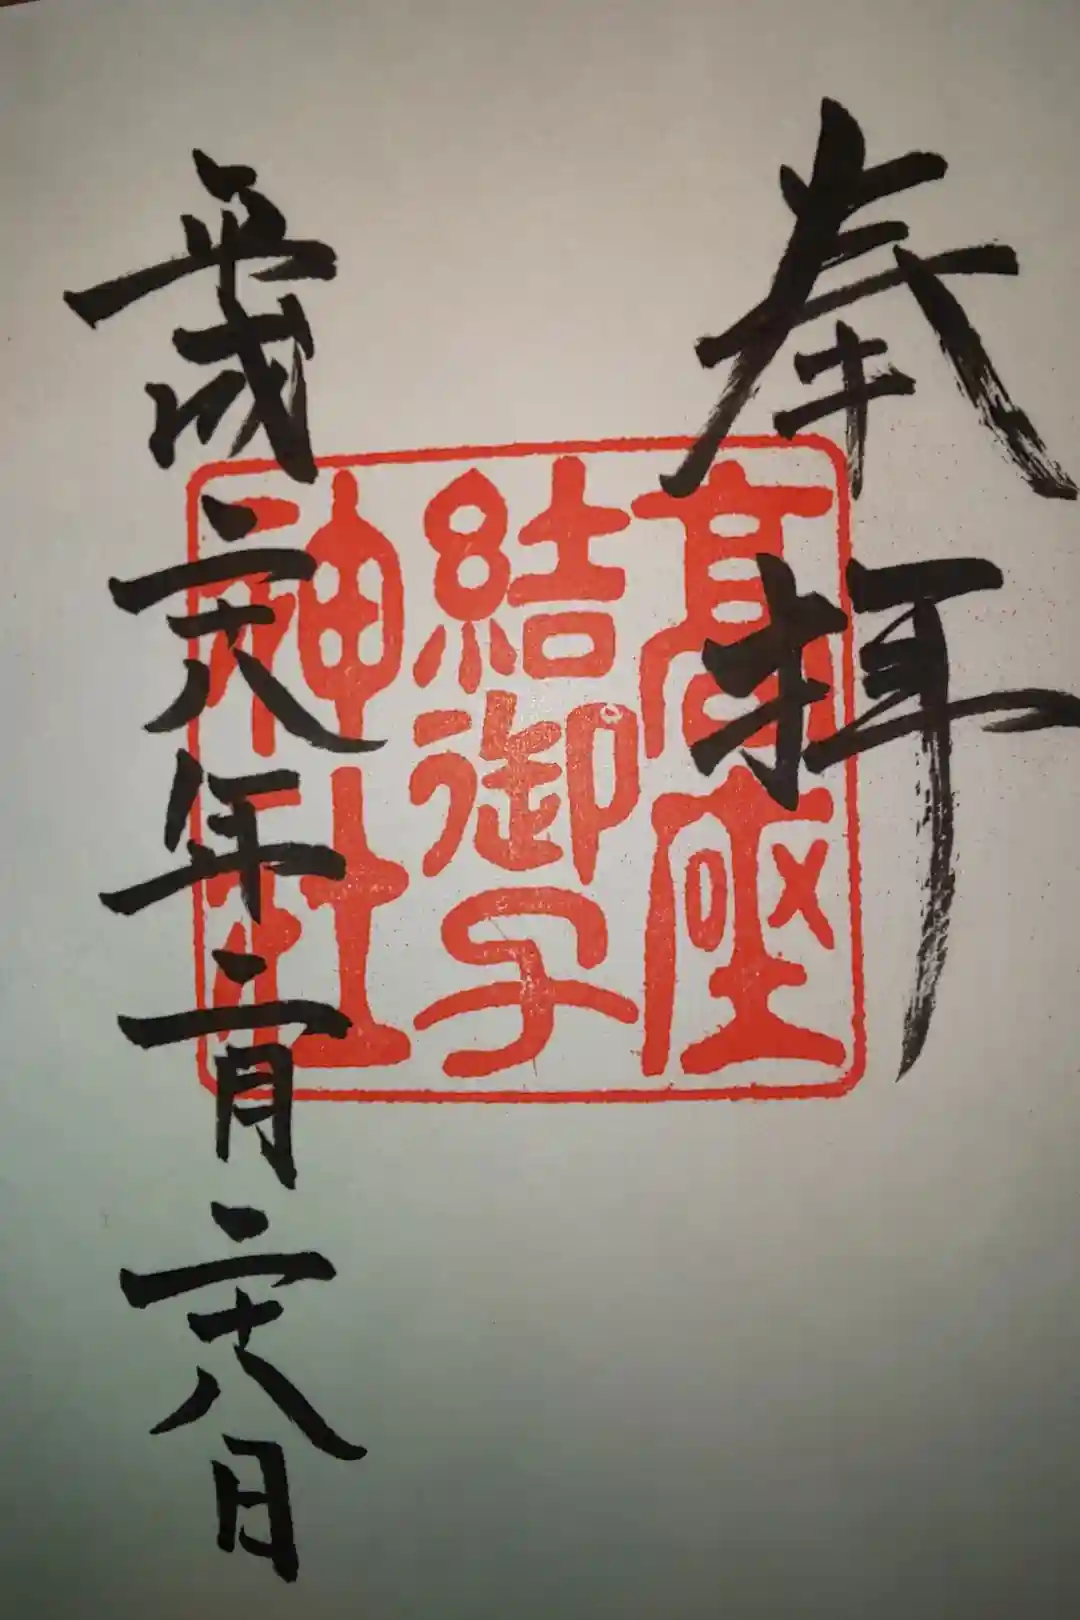 奉拝
高座
結御子
神社
平成二十八年二月二十八日